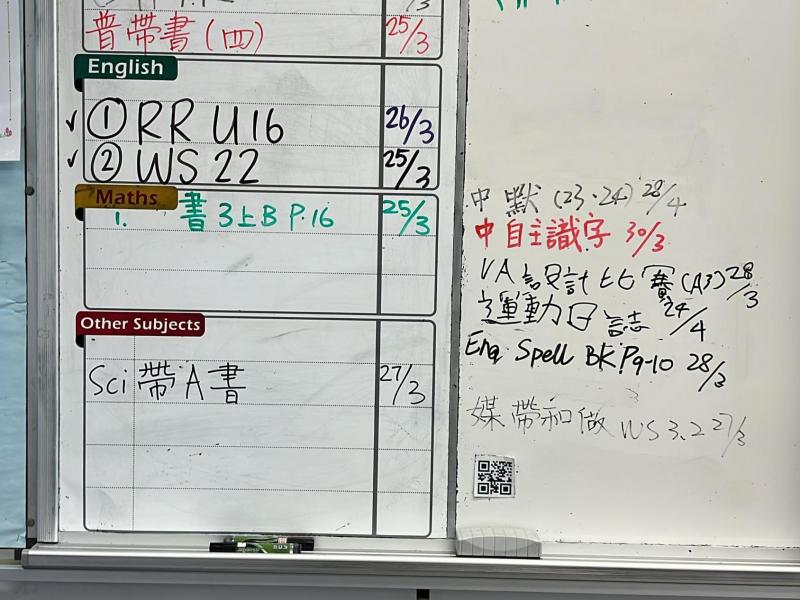 普帶書(四) 25/3
English
① RR U16 26/3
② WS 22 25/3
Maths
1. 書3上B P.16 25/3
Other Subjects
Sci 帶A書 27/3
中默(23.24) 28/4
中自主識字 30/3
VA設計比賽(A3) 28/3
運動日誌 24/4
Eng Spell BK P9-10 28/3
媒帶和做 WS 3.2 27/3